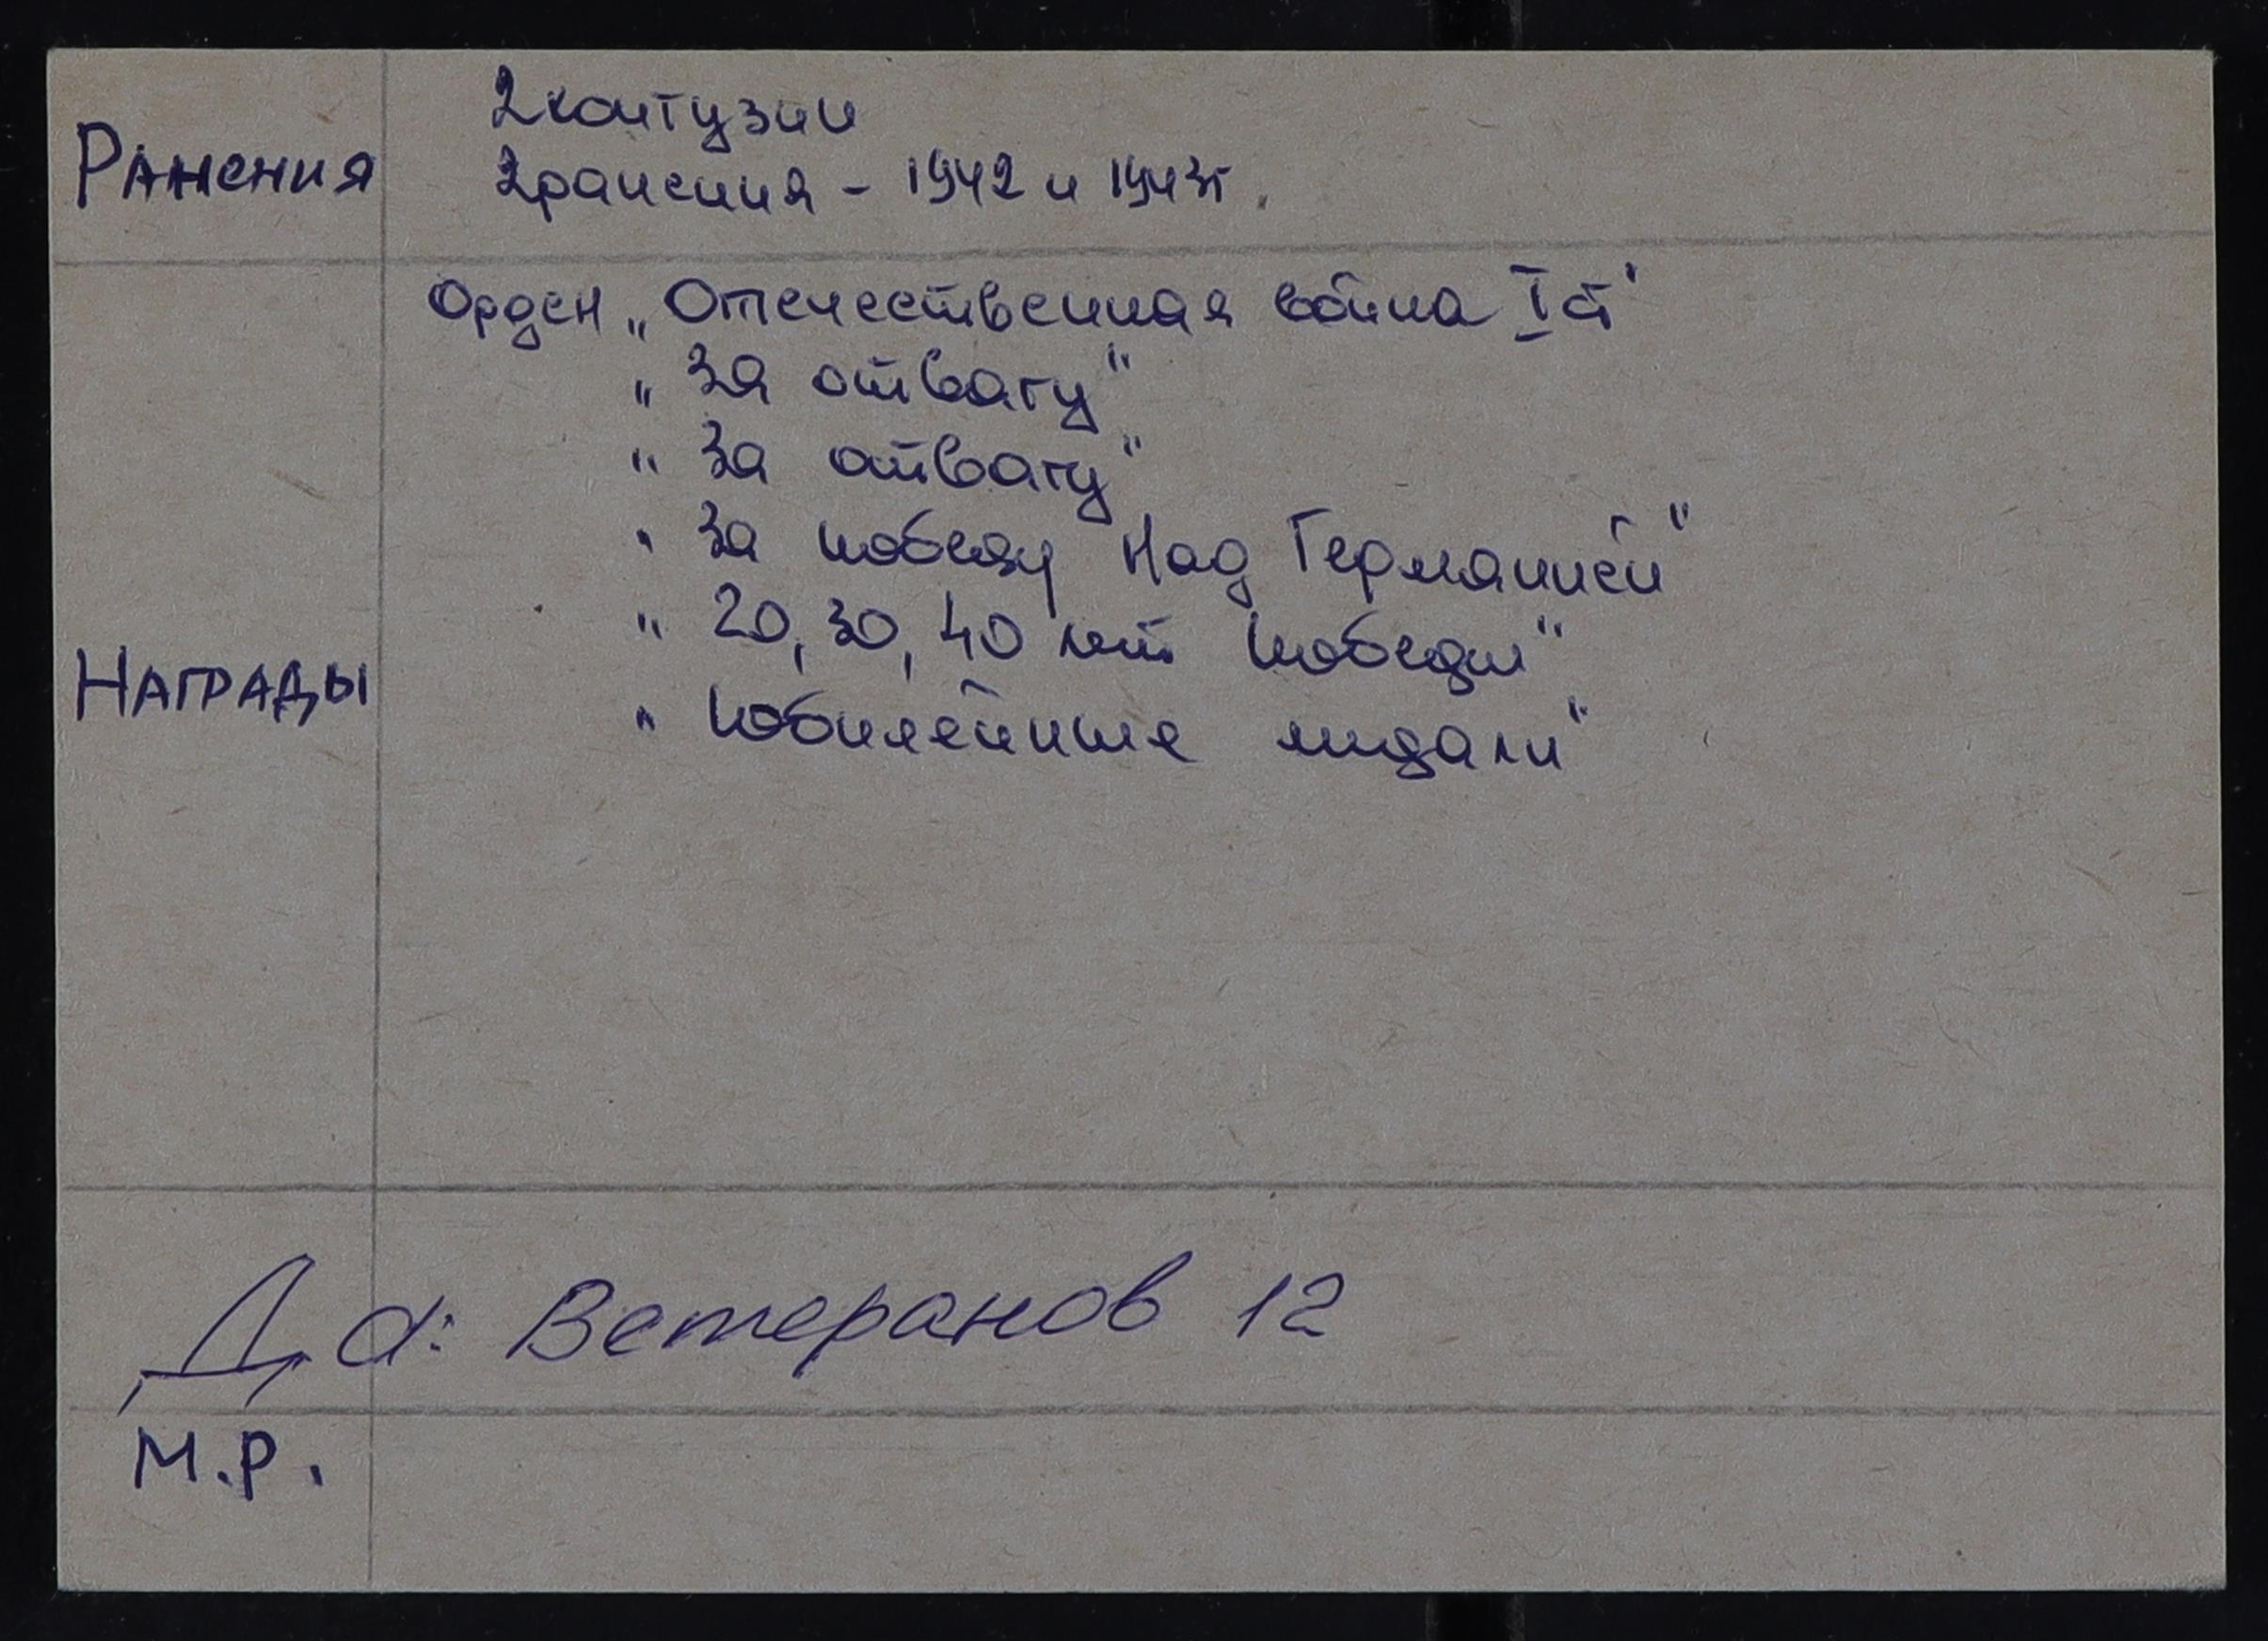 Ранения
2 контузии
2 ранения - 1942 и 1943г.
Награды
Орден „Отечественная война I ст"
„За отвагу"
"За отвагу"
"За победу над Германией"
"20, 30, 40 лет победы"
"Юбилейные медали"
Д.а: Ветеранов 12
М.Р.